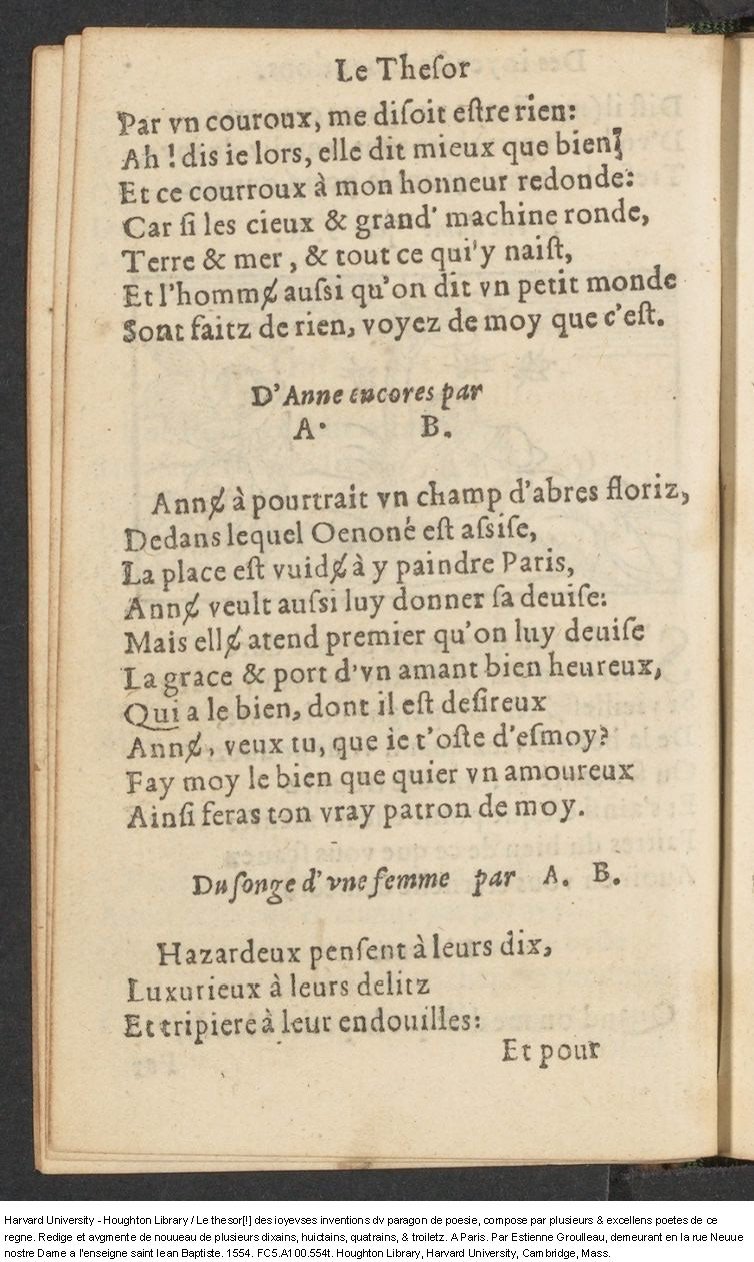 Le Theſor
Par vn couroux, me diſoit eſtre rien:
Ah ! dis ie lors, elle dit mieux que bien,
Et ce courroux à mon honneur redonde:
Car ſi les cieux & grand' machine ronde,
Terre & mer, & tout ce qui'y naiſt,
Et l'homme̸ auſsi qu'on dit vn petit monde
Sont faitz de rien, voyez de moy que c'eſt.
D'Anne encores par
A. B.
Anne̸ à pourtrait vn champ d'abres floriz,
Dedans lequel Oenoné eſt aſsiſe,
La place eſt vuide̸ à y paindre Paris,
Anne̸ veult auſsi luy donner ſa deuiſe:
Mais elle̸ atend premier qu'on luy deuiſe
La grace & port d'vn amant bien heureux,
Qui a le bien, dont il eſt deſireux
Anne̸, veux tu, que ie t'oſte d'eſmoy?
Fay moy le bien que quier vn amoureux
Ainſi feras ton vray patron de moy.
Du ſonge d'vne femme par A. B.
Hazardeux penſent à leurs dix,
Luxurieux à leurs delitz
Et tripiere à leur endouilles:
Et pour
Harvard University - Houghton Library / Le thesor[!] des ioyevses inventions dv paragon de poesie, compose par plusieurs & excellens poetes de ce
regne. Redige et avgmente de nouueau de plusieurs dixains, huictains, quatrains, & troiletz. A Paris. Par Estienne Groulleau, demeurant en la rue Neuue
nostre Dame a l'enseigne saint Iean Baptiste. 1554. FC5.A100.554t. Houghton Library, Harvard University, Cambridge, Mass.